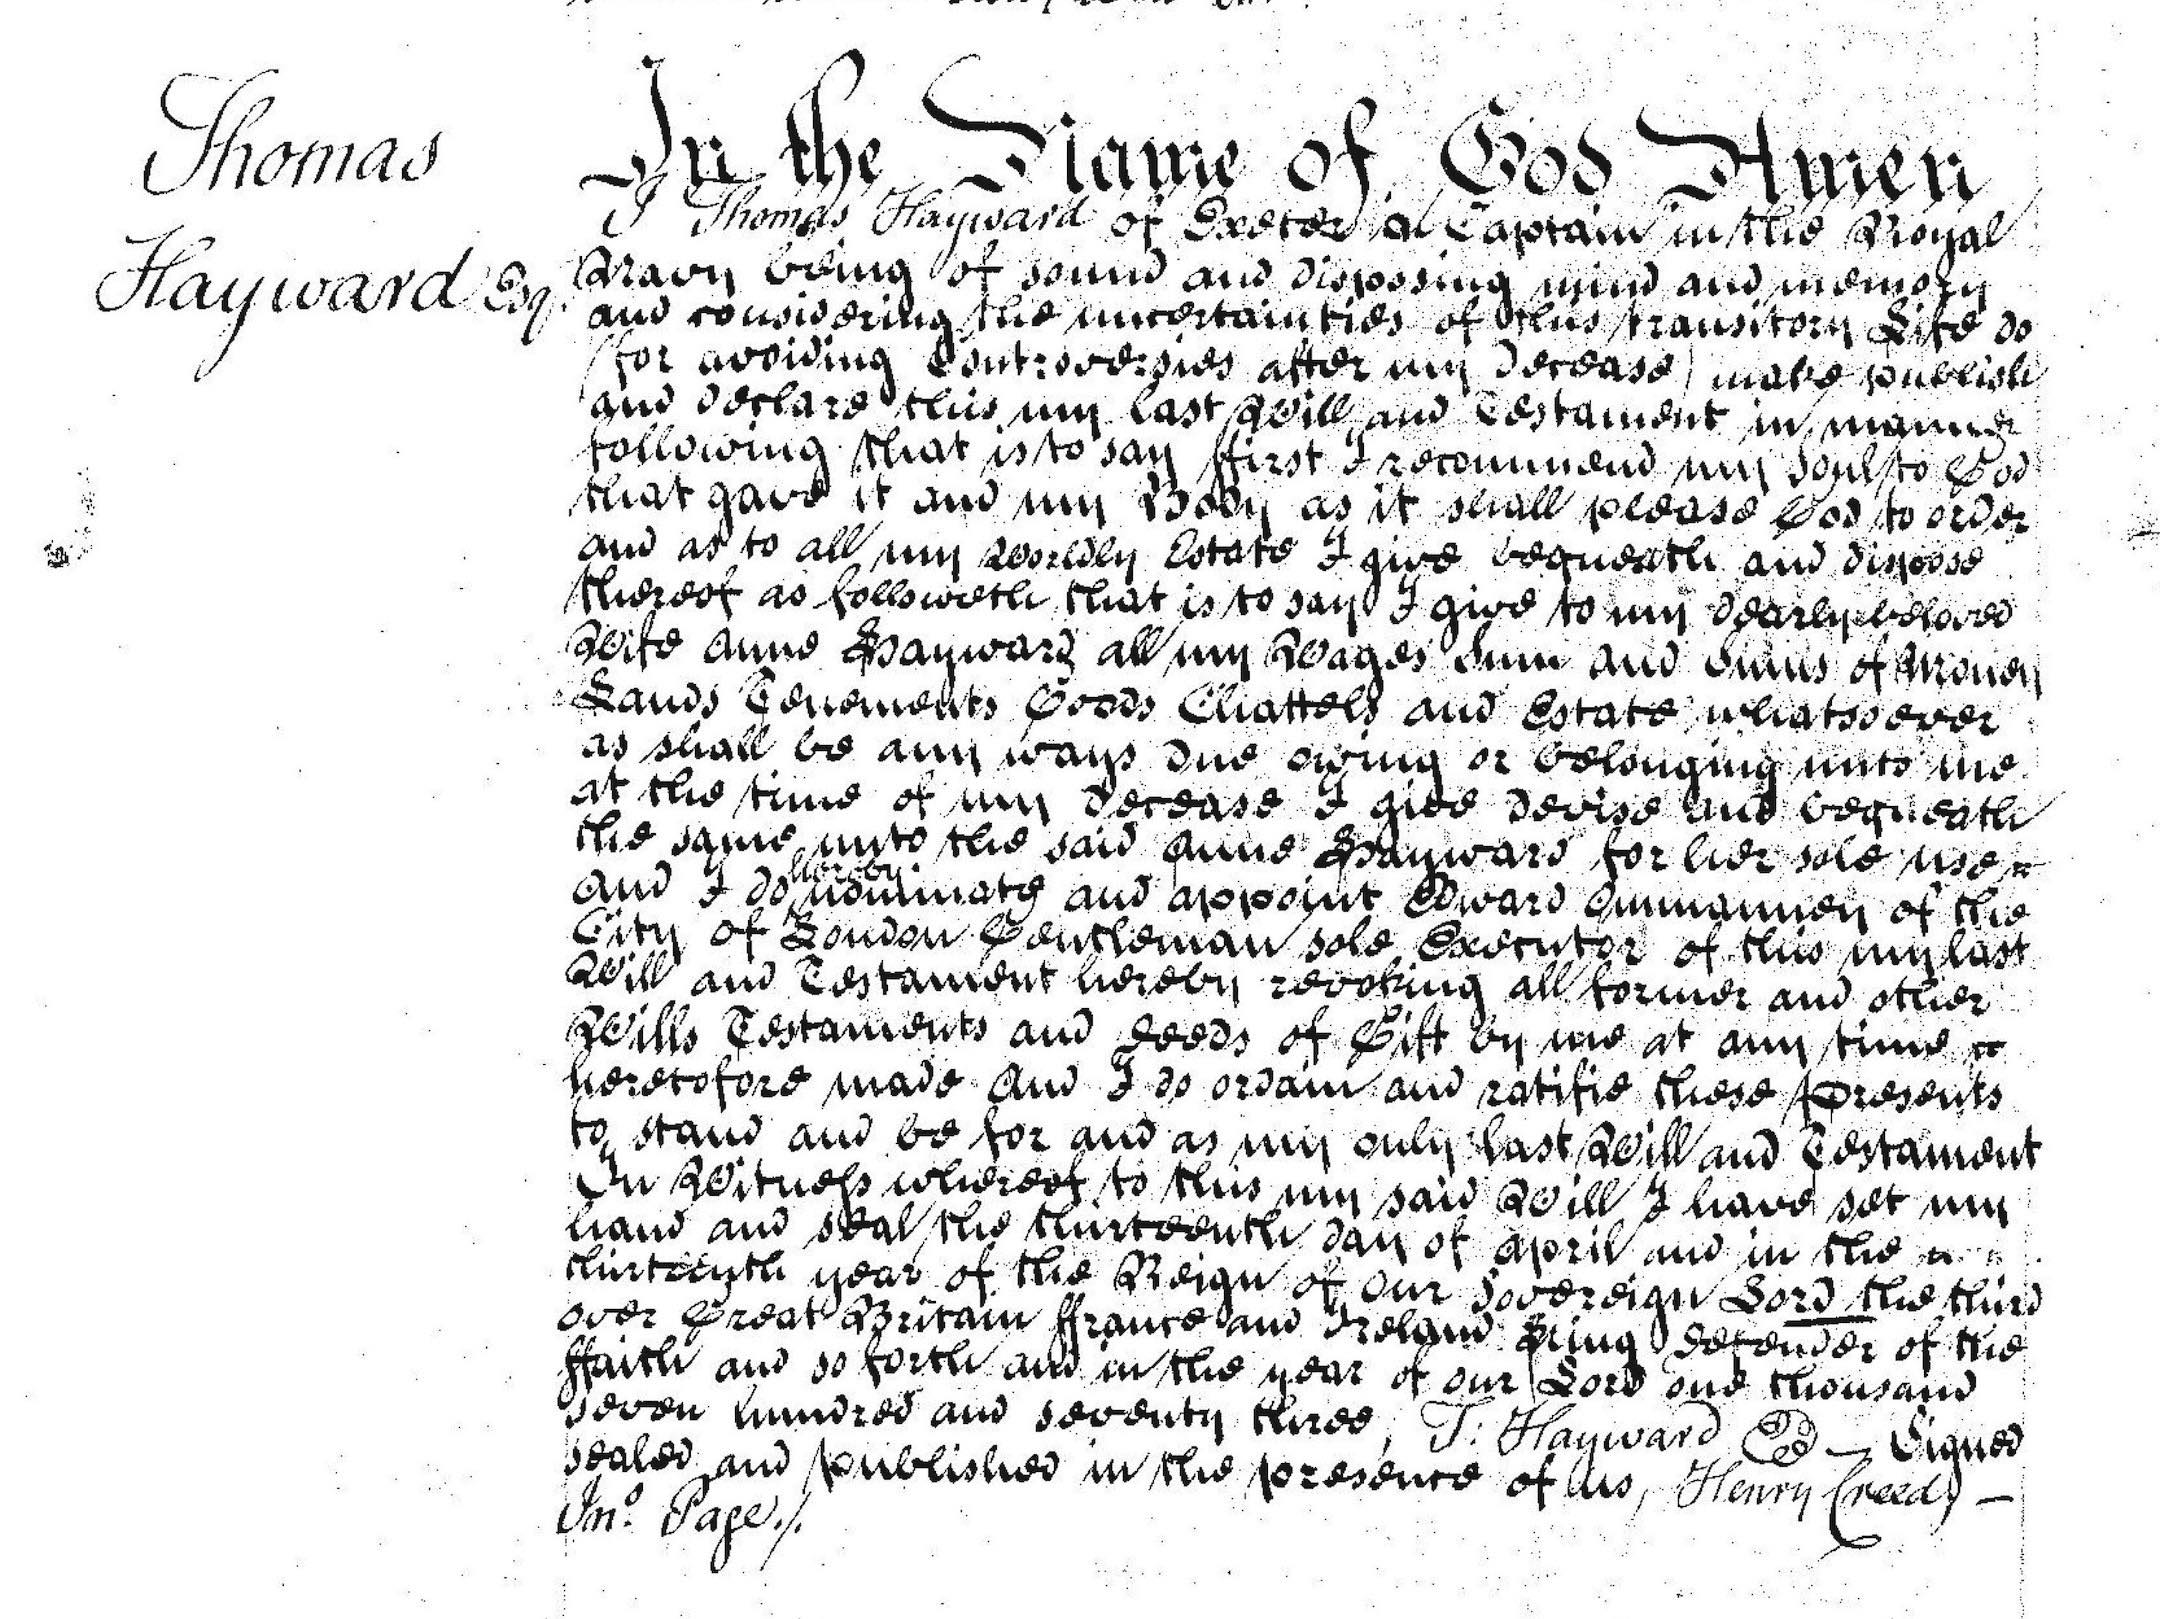 Thomas
Hayward Esq.
In the Name of God Amen
I Thomas Hayward of Exeter a Captain in the Royal
Navy being of sound and disposing mind and memory
and considering the uncertainties of this transitory Life do
(for avoiding Controversies after my decease) make publish
and declare this my last Will and Testament in manner
following that is to say ffirst I recommend my Soul to God
that gave it and my Body as it shall please God to order
and as to all my Worldly Estate I give bequeath and dispose
thereof as followeth that is to say I give to my dearly beloved
Wife Anne Hayward all my Wages Sum and Sums of Money
Lands Tenements Goods Chattels and Estate whatsoever
as shall be any ways due owing or belonging unto me
at the time of my decease I give devise and bequeath
the same unto the said Anne Hayward for her sole use
And I do hereby nominate and appoint Edward Ommanney of the
City of London Gentleman sole Executor of this my last
Will and Testament hereby revoking all former and other
Wills Testaments and deeds of Gift by me at any time
heretofore made And I do ordain and ratifie these presents
to stand and be for and as my only last Will and Testament
In Witness whereof to this my said Will I have set my
hand and seal the thirteenth day of April and in the
thirteenth year of the Reign of our Sovereign Lord the third
over Great Britain ffrance and Ireland King defender of the
ffaith and so forth and in the year of our Lord one thousand
seven hundred and seventy three, T: Hayward — Signed
sealed and published in the presence of us, Henry Creed, —
Jno. Page./.